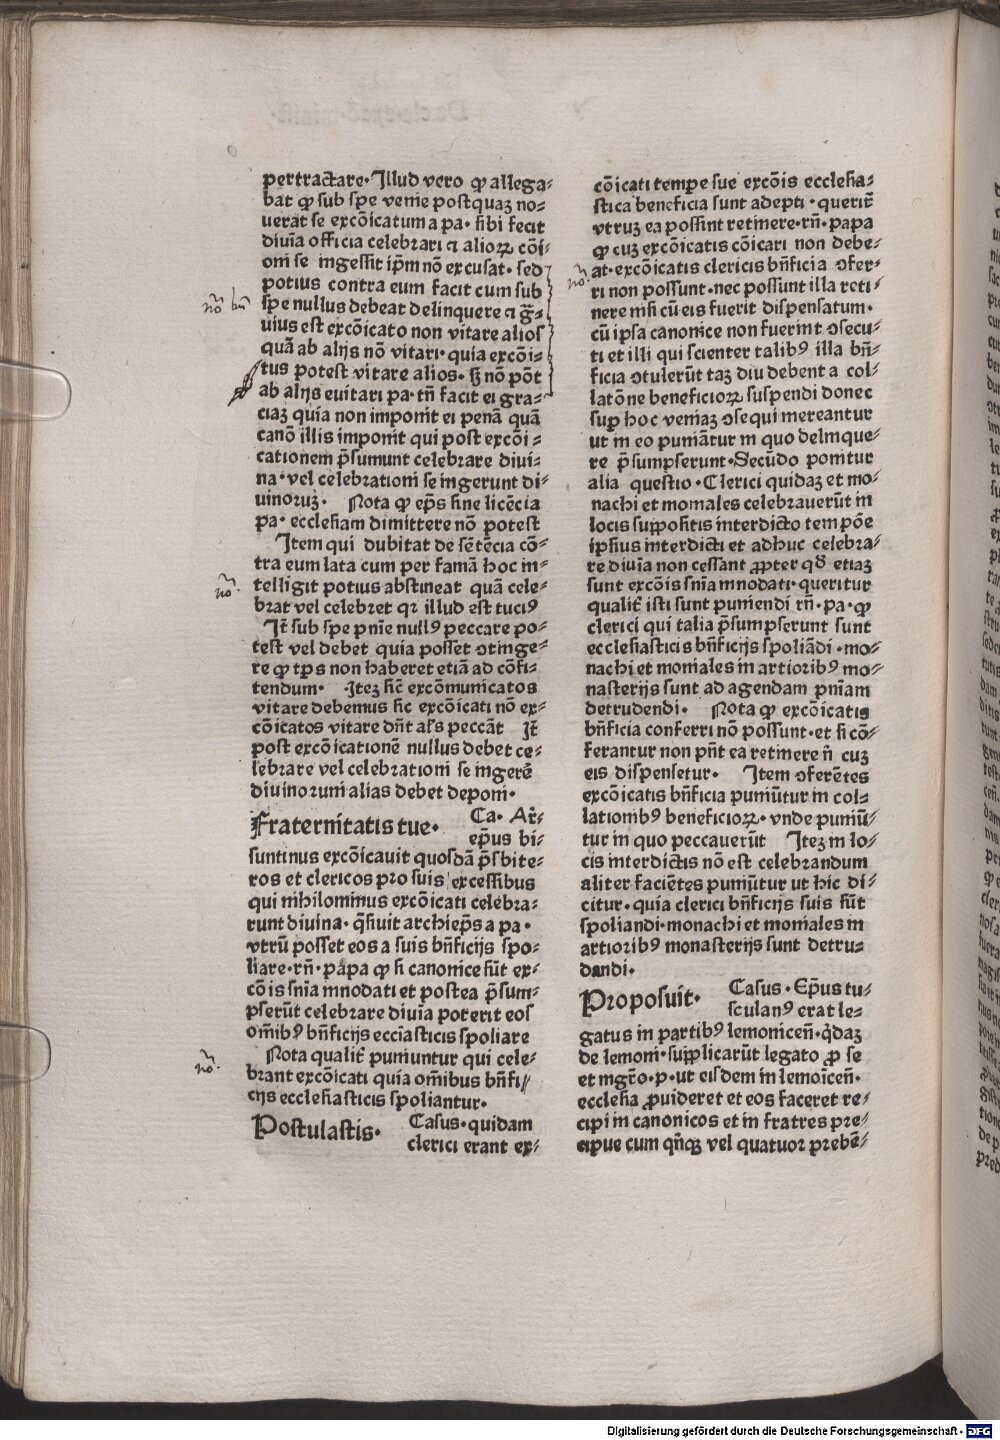 pertractare. Illud vero ꝙ allega⸗
bat ꝙ sub spe venie postquaꝫ no⸗
uerat se excōicatum a pa. sibi fecit
diuīa officia celebrari ⁊ alioꝝ cōi⸗
oni se ingessit ip̄m nō excusat. sed
potius contra eum facit cum sub
spe nullus debeat delinquere ⁊ g̅⸗
uius est excōicato non vitare alios
quā ab alijs nō vitari. quia excōi⸗
tus potest vitare alios. sꝫ nō pōt
ab alijs euitari pa. tn̄ facit ei gra⸗
ciaꝫ quia non imponit ei penā quā
canō illis imponit qui post excōi⸗
cationem p̄sumunt celebrare diui⸗
na. vel celebrationi se ingerunt di⸗
uinoruꝫ. Nota ꝙ ep̄s sine licēcia
pa. ecclesiam dimittere nō potest
Item qui dubitat de sētēcia cō⸗
tra eum lata cum per famā hoc in⸗
telligit potius abstineat quā cele⸗
brat vel celebret qr illud est tuciꝰ
It̄ sub spe pnīe nullꝰ peccare po⸗
test vel debet quia posset ↄtinge⸗
re ꝙ tp̄s non haberet etiā ad cōfi⸗
tendum. Iteꝫ sic̄ excōmunicatos
vitare debemus sic excōicati nō ex⸗
cōicatos vitare dn̄t al̄s peccāt It̄
post excōicationē nullus debet ce⸗
lebrare vel celebrationi se ingerē
diuinorum alias debet deponi.
Fraternitatis tue. Ca. Ar̄.
ep̄us bi⸗
suntinus excōicauit quosdā p̄sbite⸗
ros et clericos pro suis excessibus
qui nihilominus excōicati celebra⸗
runt diuina. q̄siuit archiep̄s a pa.
vtrū posset eos a suis bn̄ficijs spo⸗
liare. rn̄. papa ꝙ si canonice sūt ex⸗
cōis snīa innodati et postea p̄sum⸗
pserūt celebrare diuīa poterit eos
om̄ibꝰ bn̄ficijs ecciasticis spoliare
Nota qualit̄ puniuntur qui cele⸗
brant excōicati quia om̄ibus bn̄fi
cijs ecclesiasticis spoliantur.
Postulastis. Casus. quidam
clerici erant ex⸗
cōicati tempe sue excōis ecclesia⸗
stica beneficia sunt adepti. querit̄
vtruꝫ ea possint retinere. rn̄. papa
ꝙ cuꝫ excōicatis cōicari non debe⸗
at. excōicatis clericis bn̄ficia ↄfer⸗
ri non possunt. nec possunt illa reti⸗
nere nisi cū eis fuerit dispensatum.
cū ipsa canonice non fuerint ↄsecu⸗
ti et illi qui scienter talibꝰ illa bn̄⸗
ficia ↄtulerūt taꝫ diu debent a col⸗
latōne beneficioꝝ suspendi donec
sup̄ hoc veniaꝫ ↄsequi mereantur
ut in eo puniātur in quo delinque⸗
re p̄sumpserunt. Secūdo ponitur
alia questio. Clerici quidaꝫ et mo⸗
nachi et moniales celebrauerūt in
locis supp̄ositis interdicto tempōe
ipsius interdicti et adhuc celebra⸗
re diuīa non cessant ꝓpter qd̄ etiaꝫ
sunt excōis snīa innodati. queritur
qualit̄ isti sunt puniendi rn̄. pa. ꝙ
clerici qui talia p̄sumpserunt sunt
ecclesiasticis bn̄ficijs spoliādi. mo⸗
nachi et moniales in artioribꝰ mo⸗
nasterijs sunt ad agendam pnīam
detrudendi. Nota ꝙ excōicatis
bn̄ficia conferri nō possunt. et si cō⸗
ferantur non pn̄t ea retinere n̄ cuꝫ
eis dispensetur. Item ↄferētes
excōicatis bn̄ficia puniūtur in col⸗
lationibꝰ beneficioꝝ. vnde puniū⸗
tur in quo peccauerūt Iteꝫ in lo⸗
cis interdictis nō est celebrandum
aliter faciētes puniūtur ut hic di⸗
citur. quia clerici bn̄ficijs suis sūt
spoliandi. monachi et moniales in
artioribꝰ monasterijs sunt detru⸗
dandi.
Proposuit. Casus. Ep̄us tu⸗
sculanꝰ erat le⸗
gatus in partibꝰ lemonicen̄. q̄daꝫ
de lemoni. supplicarūt legato ꝓ se
et mgr̄o. p. ut eisdem in lemoīcen̄.
ecclesia ꝓuideret et eos faceret re⸗
cipi in canonicos et in fratres pre⸗
cipue cum qn̄qꝫ vel quatuor prebē⸗
Digitalisierung gefördert durch die Deutsche Forschungsgemeinschaft - DFG